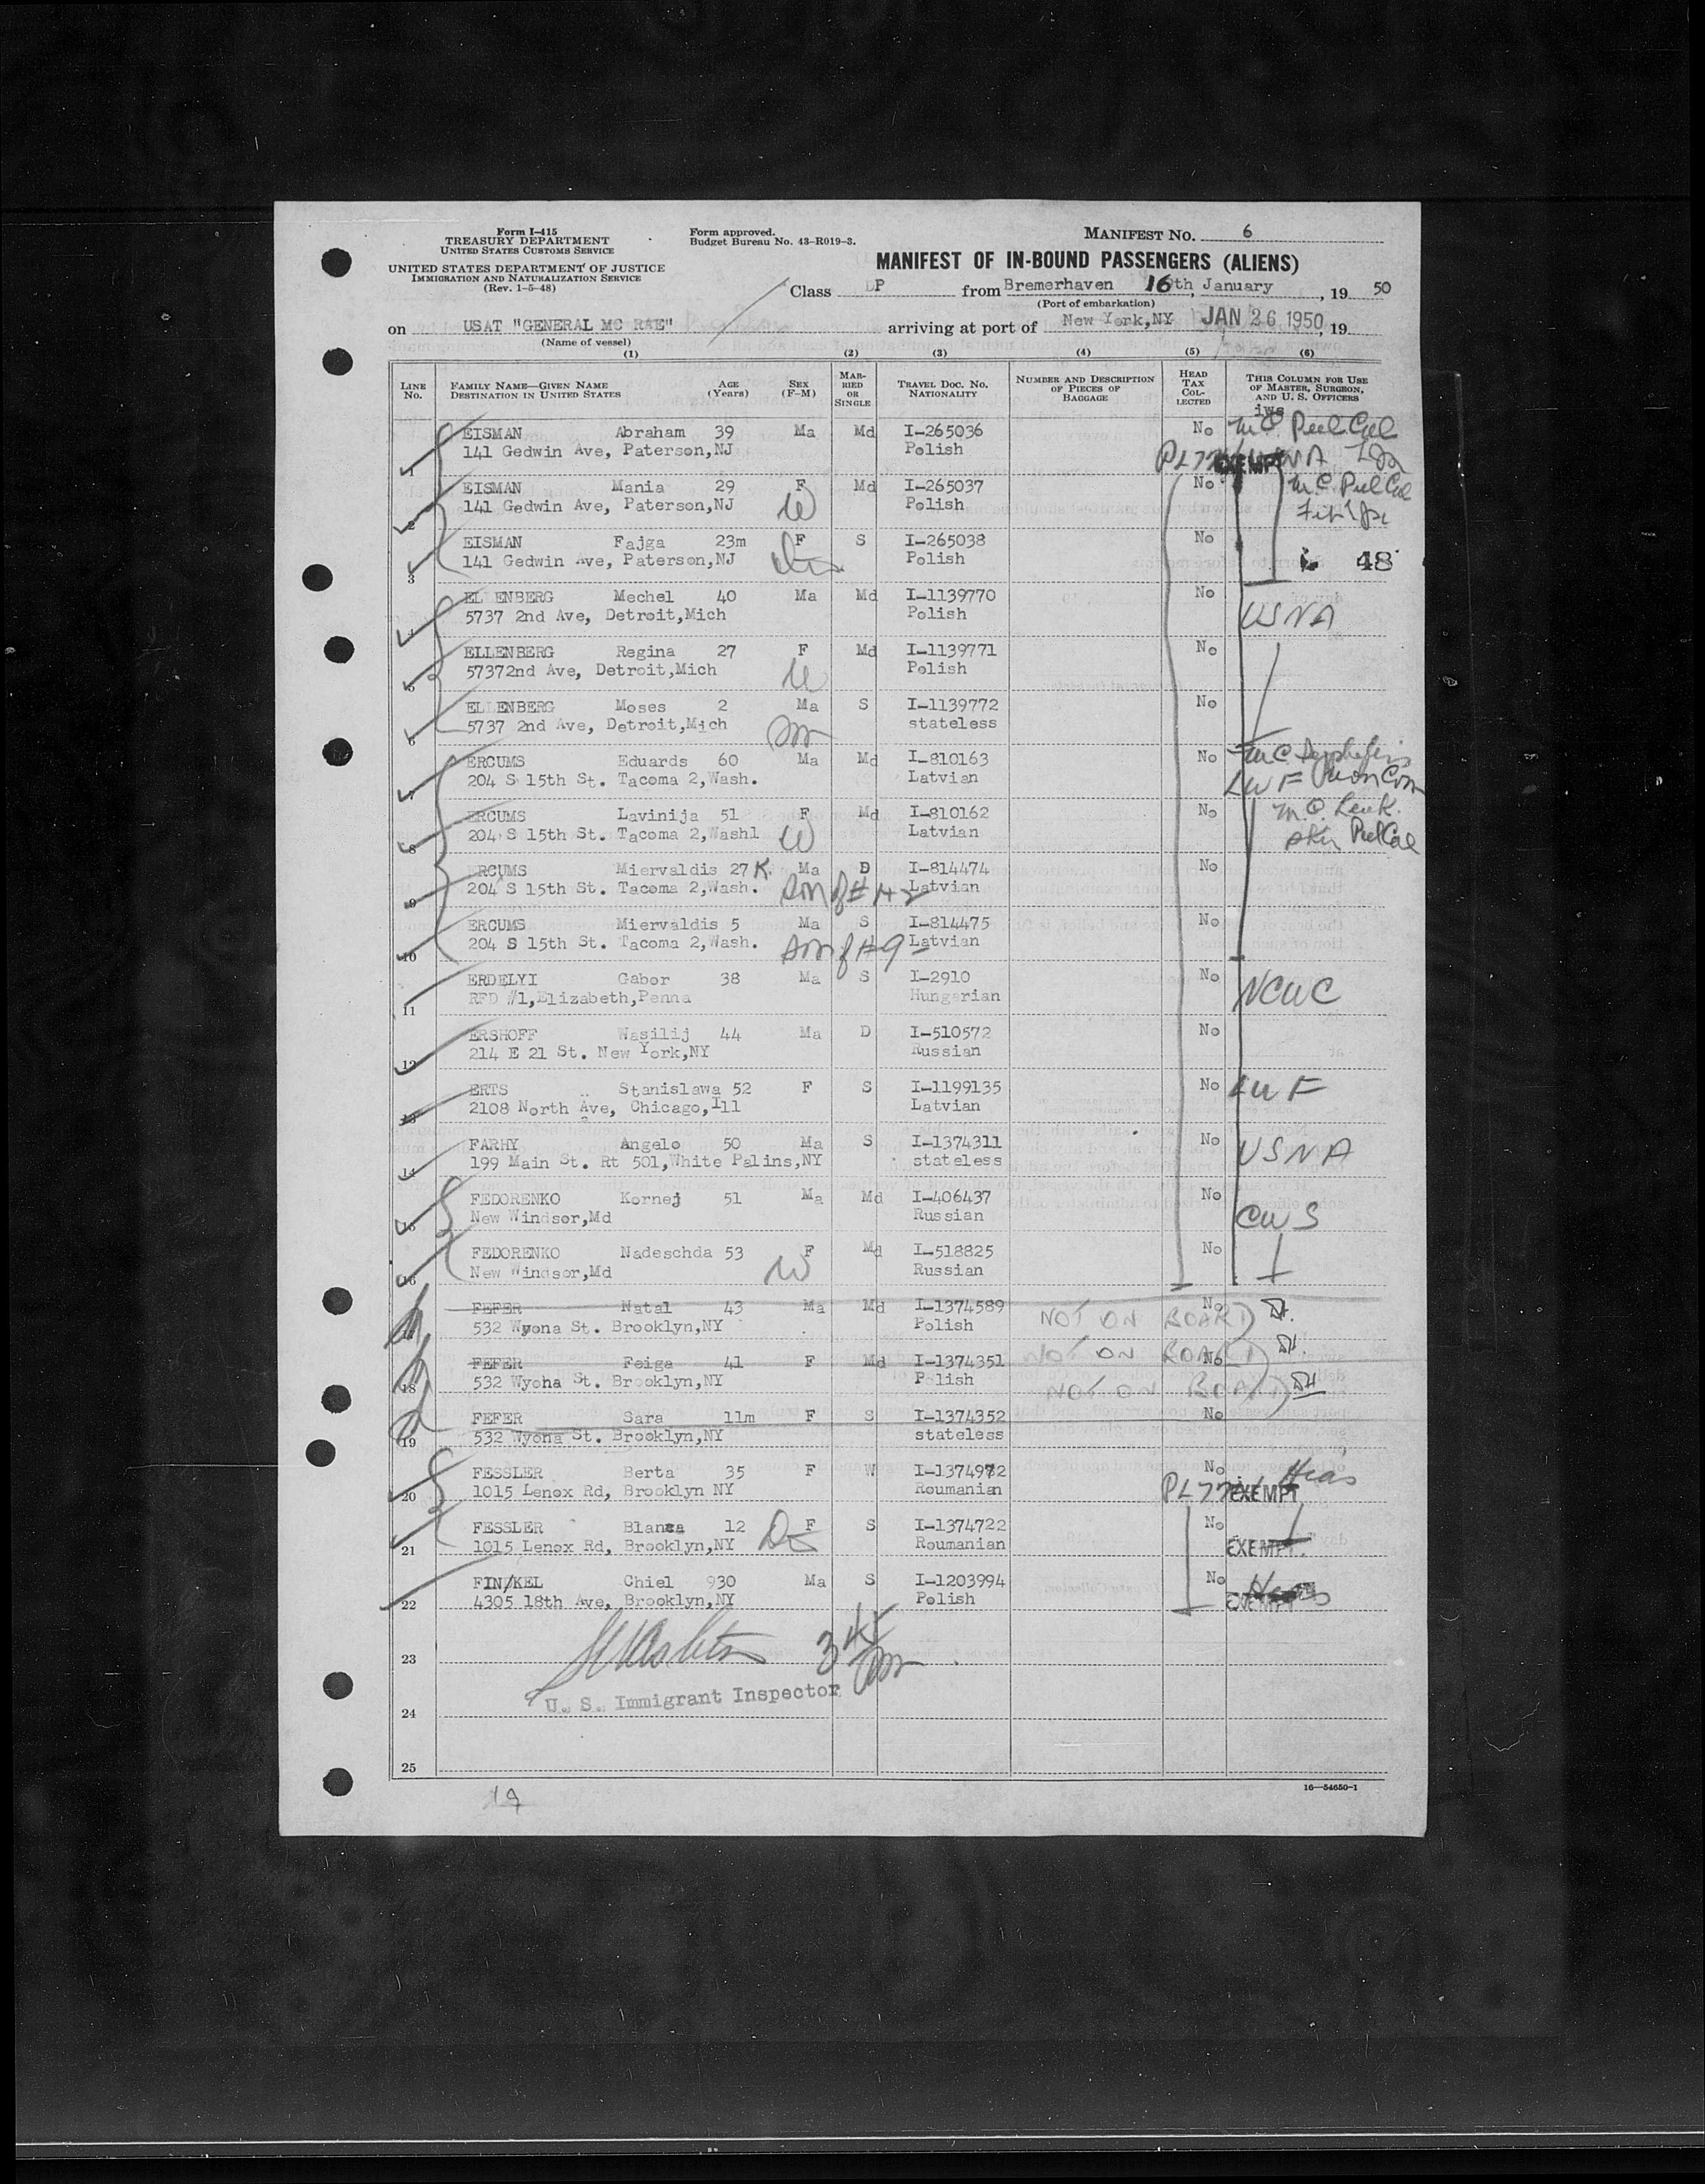 Form I-415
TREASURY DEPARTMENT
UNITED STATES CUSTOMS SERVICE
UNITED STATES DEPARTMENT OF JUSTICE
IMMIGRATION AND NATURALIZATION SERVICE
(Rev. 1-5-48)
Form approved.
Budget Bureau No. 43-R019-3.
MANIFEST NO. 6
MANIFEST OF IN-BOUND PASSENGERS (ALIENS)
Class DP from Bremerhaven 16th January, 19 50
(Port of embarkation)
on USAT "GENERAL MC RAE" arriving at port of New York,NY JAN 26 1950, 19
(Name of vessel)
(1) (2) (3) (4) (5) (6)
LINE NO. FAMILY NAME—GIVEN NAME DESTINATION IN UNITED STATES AGE (Years) SEX (F-M) MARRIED OR SINGLE TRAVEL DOC. NO. NATIONALITY NUMBER AND DESCRIPTION OF PIECES OF BAGGAGE HEAD TAX COLLECTED THIS COLUMN FOR USE OF MASTER, SURGEON, AND U. S. OFFICERS
EISMAN Abraham 39 Ma Md I-265036 No
1 141 Gedwin Ave, Paterson,NJ Polish EXEMPT
EISMAN Mania 29 F Md I-265037 No
2 141 Gedwin Ave, Paterson,NJ W Polish
EISMAN Fajga 23m F S I-265038 No
3 141 Gedwin Ave, Paterson,NJ Polish 48
ELLENBERG Mechel 40 Ma Md I-1139770 No
4 5737 2nd Ave, Detroit,Mich Polish USNA
ELLENBERG Regina 27 F Md I-1139771 No
5 57372nd Ave, Detroit,Mich W Polish
ELLENBERG Moses 2 Ma S I-1139772 No
6 5737 2nd Ave, Detroit,Mich Son stateless
ERCUMS Eduards 60 Ma Md I-810163 No
7 204 S 15th St. Tacoma 2,Wash. Latvian LWF
ERCUMS Lavinija 51 F Md I-810162 No
8 204 S 15th St. Tacoma 2,Washl W Latvian
ERCUMS Miervaldis 27 K. Ma D I-814474 No
9 204 S 15th St. Tacoma 2,Wash. Son of # Latvian
ERCUMS Miervaldis 5 Ma S I-814475 No
10 204 S 15th St. Tacoma 2,Wash. Son of #9 Latvian
ERDELYI Gabor 38 Ma S I-2910 No
11 RFD #1,Elizabeth,Penna Hungarian NCWC
ERSHOFF Wasilij 44 Ma D I-510572 No
12 214 E 21 St. New York,NY Russian
ERTS Stanislawa 52 F S I-1199135 No LWF
13 2108 North Ave, Chicago,Ill Latvian
FARHY Angelo 50 Ma S I-1374311 No
14 199 Main St. Rt 501,White Palins,NY stateless USNA
FEDORENKO Kornej 51 Ma Md I-406437 No
15 New Windsor,Md Russian CWS
FEDORENKO Nadeschda 53 F Md I-518825 No
16 New Windsor,Md W Russian
FEFER Natal 43 Ma Md I-1374589 No
17 532 Wyona St. Brooklyn,NY Polish NOT ON BOARD
FEFER Feiga 41 F Md I-1374351 NOT ON BOARD No
18 532 Wyona St. Brooklyn,NY Polish NOT ON BOARD
FEFER Sara 11m F S I-1374352 No
19 532 Wyona St. Brooklyn,NY stateless
FESSLER Berta 35 F W I-1374972 No Hias
20 1015 Lenox Rd, Brooklyn NY Roumanian PL774 EXEMPT
FESSLER Blanca 12 F S I-1374722 No
21 1015 Lenox Rd, Brooklyn,NY Roumanian EXEMPT.
FIN/KEL Chiel 930 Ma S I-1203994 No Hias
22 4305 18th Ave, Brooklyn,NY Polish EXEMPT
23
U. S. Immigrant Inspector
24
25
16—54650-1
19